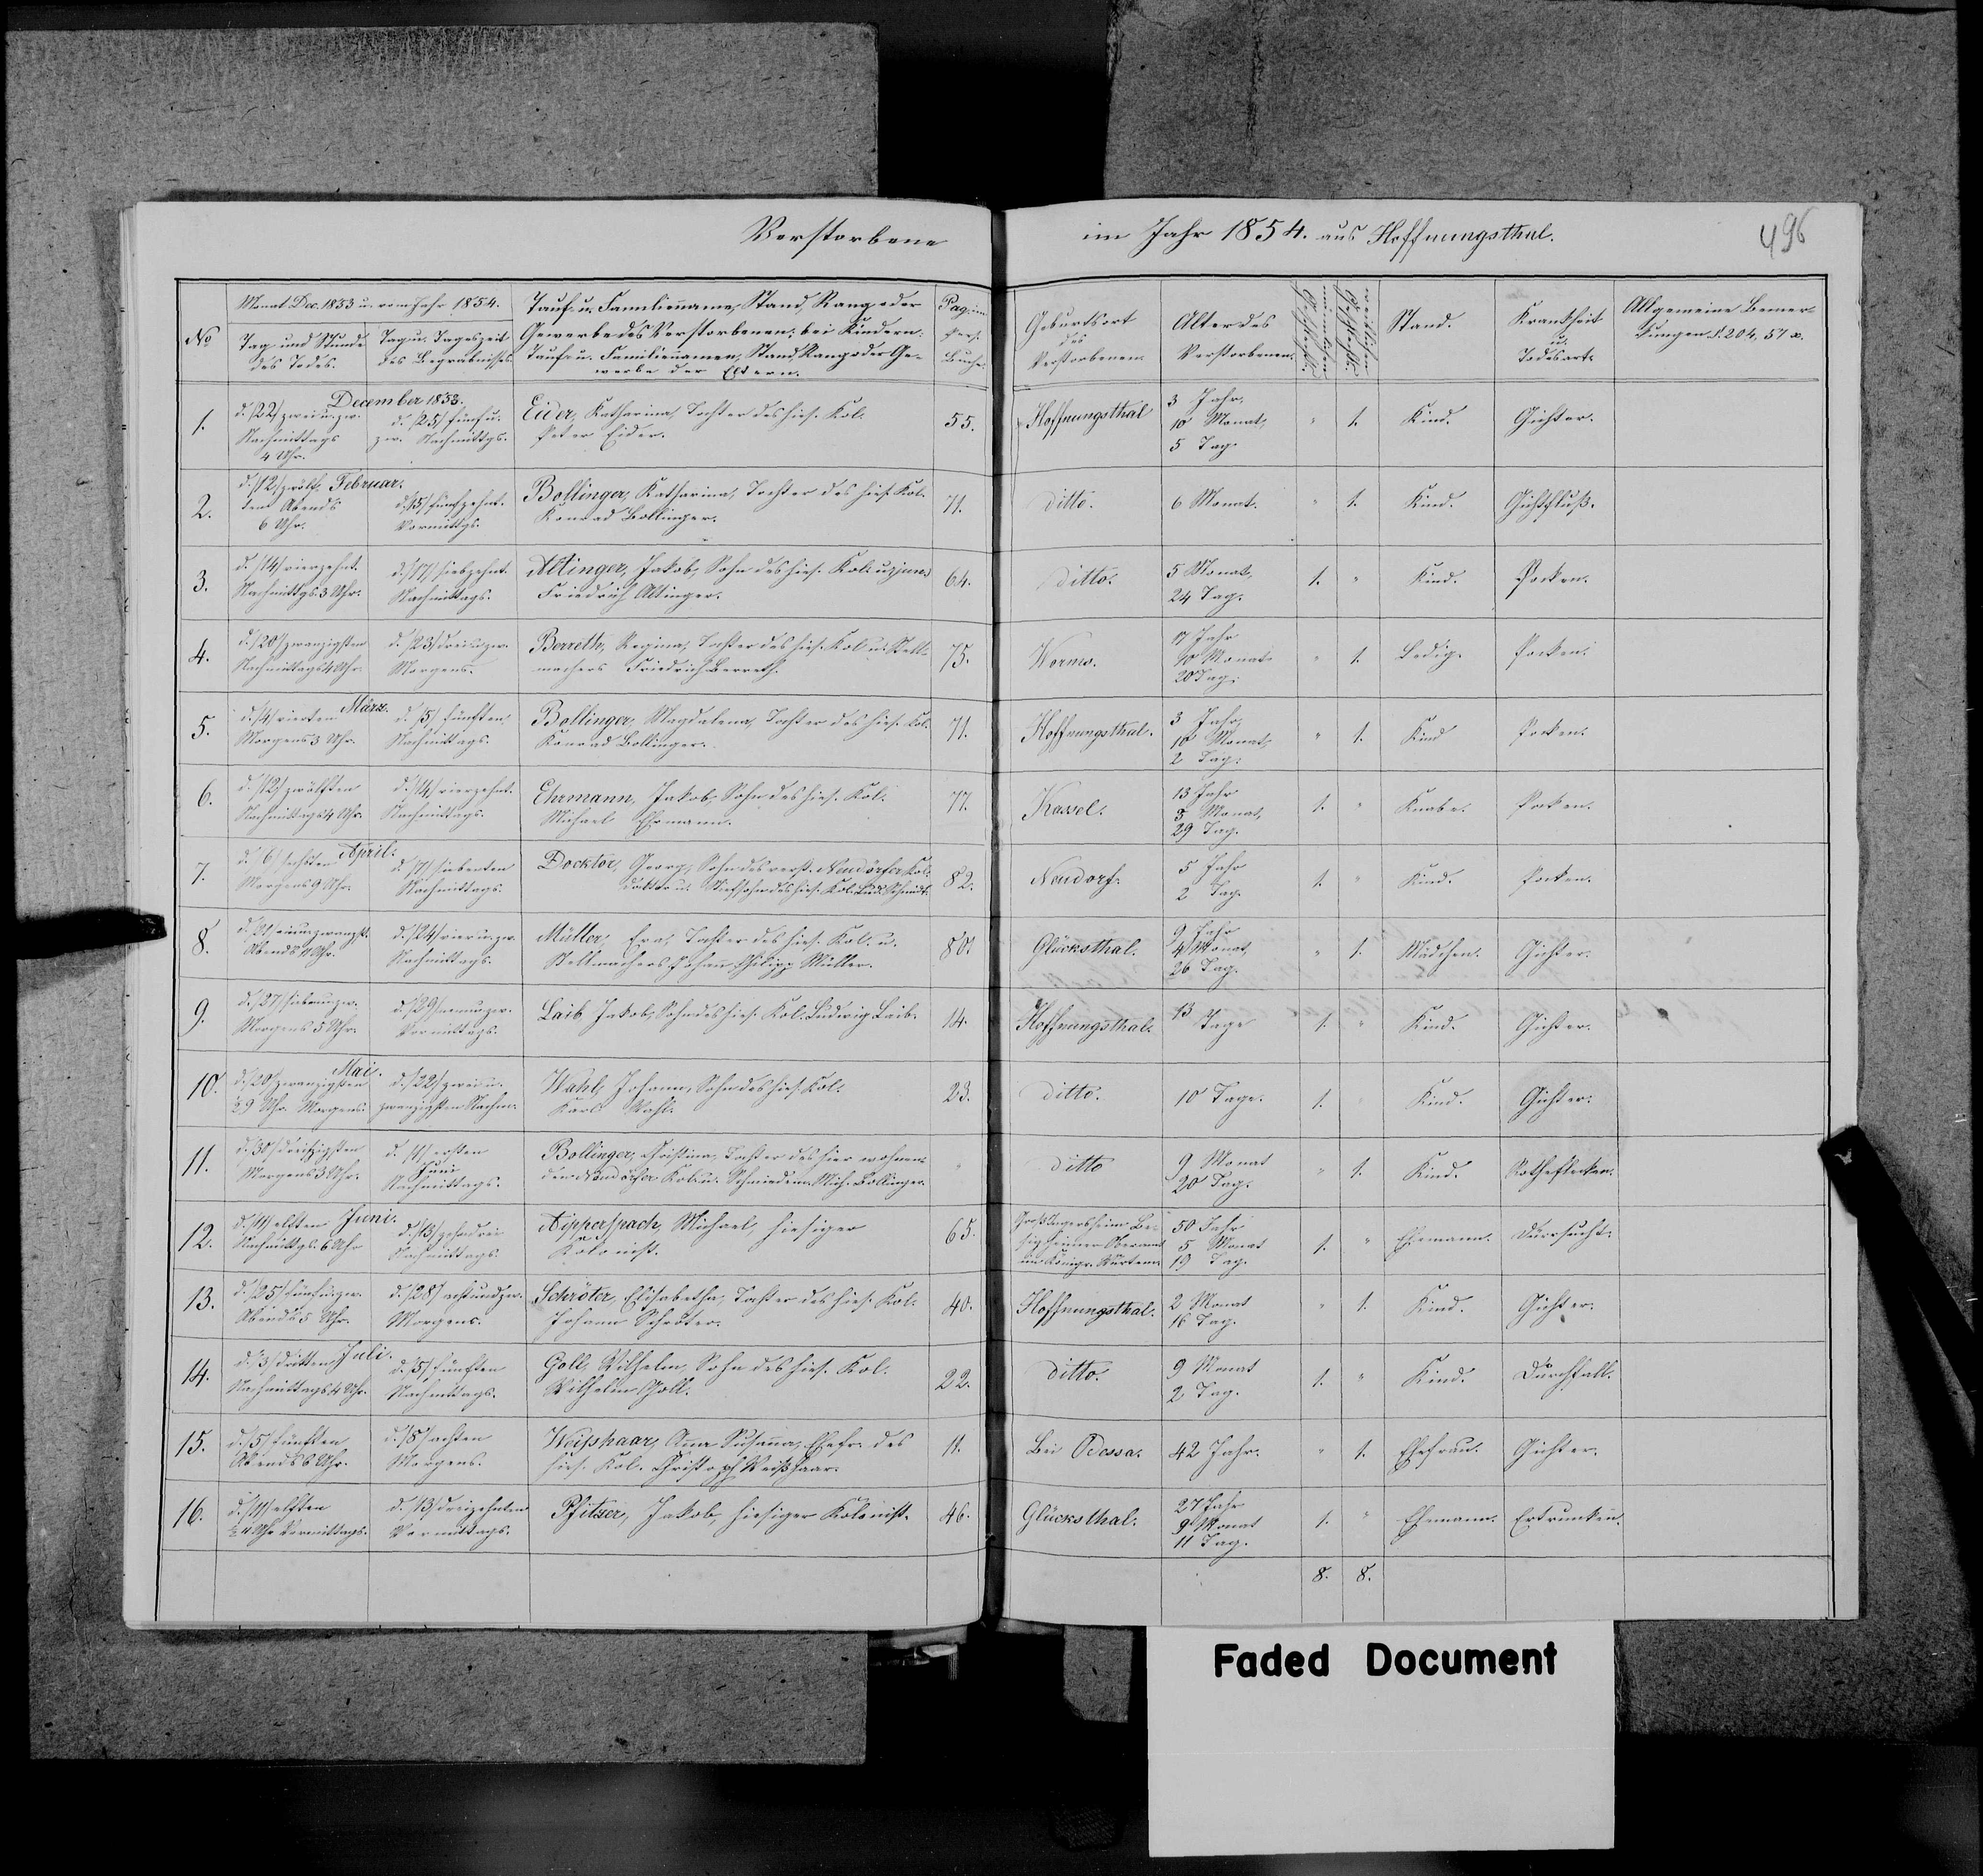 Verstorbene im Jahr 1854. aus Hoffnungsthal.
496
No
Monat Dec. 1853 u. vom Jahr 1854.
Tag und Stunde des Todes.
Tag u. Tageszeit des Begräbnisses.
Tauf- u. Familienname, Stand, Rang oder
Gewerbe des Verstorbenen; bei Kindern:
Tauf- u. Familiennamen, Stand, Rang oder Ge-
werbe der Eltern.
Pag. im Pers. Buche.
Geburtsort des Verstorbenen.
Alter des Verstorbenen.
männlichen Geschlechts.
weiblichen Geschlechts.
Stand.
Krankheit u. Todesart.
Allgemeine Bemer-
kungen
December 1853.
1. d. /22/ zwei u. zw. Nachmittags 4 Uhr.
d. /25/ fünf u. zw. Nachmittgs.
Eider, Katharina, Tochter des hies. Kol.
Peter Eider.
55. Hoffnungsthal 3 Jahr, 10 Monat, 5 Tag. " 1. Kind. Gichter.
Februar.
2. d. /12/ zwölf- ten Abends 6 Uhr.
d. /15/ fünfzehnt. Vormittgs.
Bollinger, Katharina, Tochter des hies. Kol.
Konrad Bollinger.
71. ditto. 6 Monat. " 1. Kind. Gichtfluß.
3. d. /14/ vierzehnt. Nachmittgs. 3 Uhr.
d. /17/ siebzehnt. Nachmittags.
Aldinger, Jakob, Sohn des hies. Kol.
Friedrich Aldinger.
64. ditto. 5 Monat, 24 Tag. 1. " Kind. Pocken.
4. d. /20/ zwanzigsten Nachmittags 4 Uhr.
d. /23/ drei u. zw. Morgens.
Berreth, Regina, Tochter des hies. Kol. u. Stell-
machers Friedrich Berreth.
75. Worms. 17 Jahr 10 Monat 20 Tag. " 1. Ledig. Pocken.
März.
5. d. /4/ vierten Morgens 3 Uhr.
d. /5/ fünften Nachmittags.
Bollinger, Magdalena, Tochter des hies. Kol.
Konrad Bollinger.
71. Hoffnungsthal. 3 Jahr, 10 Monat, 2 Tag. " 1. Kind Pocken.
6. d. /12/ zwölften Nachmittags 4 Uhr.
d. /14/ vierzehnt. Nachmittags.
Ehrmann, Jakob, Sohn des hies. Kol.
Michael Ehrmann.
77. Kassel. 13 Jahr 3 Monat, 29 Tag. 1. " Knabe. Pocken.
April.
7. d. /6/ sechsten Morgens 9 Uhr.
d. /7/ siebenten Nachmittags.
Docktor, Georg, Sohn des verst. Neudörfer Kol.
Doktor u. Stiefsohn des hies. Kol. Schmidt.
82. Neudorf. 5 Jahr 2 Tag. 1. " Kind. Pocken.
8. d. /21/ ein u. zwanzgst. Abends Uhr.
d. /24/ vier u. zw. Nachmittags.
Müller, Eva, Tochter des hies. Kol. u.
Stellmachers Johann Philipp Müller.
80. Glücksthal. 9 Jahr 4 Monat, 26 Tag. " 1. Mädchen. Gichter.
9. d. /27/ sieben u. zw. Morgens 5 Uhr.
d. /29/ neun u. zw. Vormittags.
Laib Jakob, Sohn des hies. Kol. Ludwig Laib.
14. Hoffnungsthal. 13 Tage 1. " Kind. Gichter.
Mai.
10. d. /20/ zwanzigsten Uhr. Morgens.
d. /22/ zwei u. zwanzigsten Nachm.
Wahl, Johann, Sohn des hies. Kol.
Karl Wahl.
23. ditto. 10 Tage. 1. " Kind. Gichter.
11. d. /30/ dreißigsten Morgens 3 Uhr.
d. /1/ ersten Juni Nachmittags.
Bollinger, Christina, Tochter des hier wohnen-
den Neudörfer Kol. u. Schmiedem. Mich. Bollinger.
" ditto 9 Monat 20 Tag. " 1. Kind. Rotheflecken.
Juni.
12. d. /11/ elften Nachmittgs. 6 Uhr
d. /13/ zehndrei Nachmittags.
Nipperspach, Michael, hiesiger
Kolonist.
65. Groß Ingersheim Be- sigheimer Oberamt im Königr. Würtem. 50 Jahr 5 Monat 19 Tag. 1. " Ehemann. Dürrsucht.
13. d. /25/ fünf u. zw. Abends 5 Uhr.
d. /28/ acht und zw. Morgens.
Schröter, Elisabetha, Tochter des hies. Kol.
Johann Schröter.
40. Hoffnungsthal. 2 Monat 16 Tag. " 1. Kind. Gichter.
Juli.
14. d. /3/ dritten Nachmittags 4 Uhr.
d. /5/ fünften Nachmittags.
Goll, Wilhelm, Sohn des hies. Kol.
Wilhelm Goll.
22. ditto. 9 Monat 2 Tag. 1. " Kind. Durchfall.
15. d. /5/ fünften Abends 6 Uhr.
d. /8/ achten Morgens.
Weißhaar, Anna Susanna, Ehefr. des
hies. Kol. Christoph Weißhaar.
11. Bei Odessa. 42 Jahr. " 1. Ehefrau. Gichter.
16. d. /11/ elften Uhr Vormittags.
d. /13/ dreizehnten Vormittags.
Pfitzer, Jakob, hiesiger Kolonist.
46. Glücksthal. 27 Jahr 9 Monat 11 Tag. 1. " Ehemann. Ertrunken.
8. 8.
Faded Document